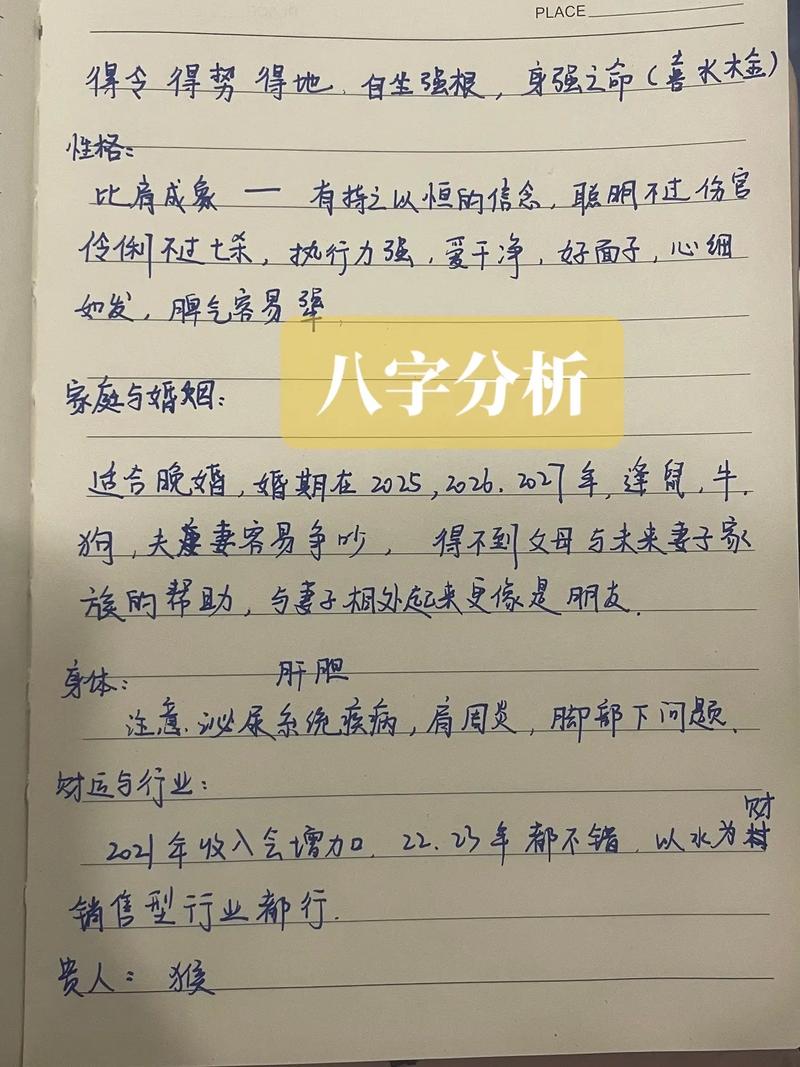 PLACE
得令 得势 得地.自坐强根，身强之命（喜水木金）
性格：
比肩成象 — 有持之以恒的信念，聪明不过伤官
伶俐不过七杀，执行力强，爱干净，好面子，心细
如发，脾气容易犟.
八字分析
家庭与婚姻：
适合晚婚，婚期在2025，2026.2027年，逢鼠，牛.
狗，夫妻容易争吵， 得不到父母与未来妻子家
族的帮助，与妻子相处起来更像是朋友.
身体： 肝胆
注意泌尿系统疾病，肩周炎，脚部下问题.
财运与行业：
财
2021年收入会增加.22.23年都不错.以水为
销售型行业都行.
贵人：猴